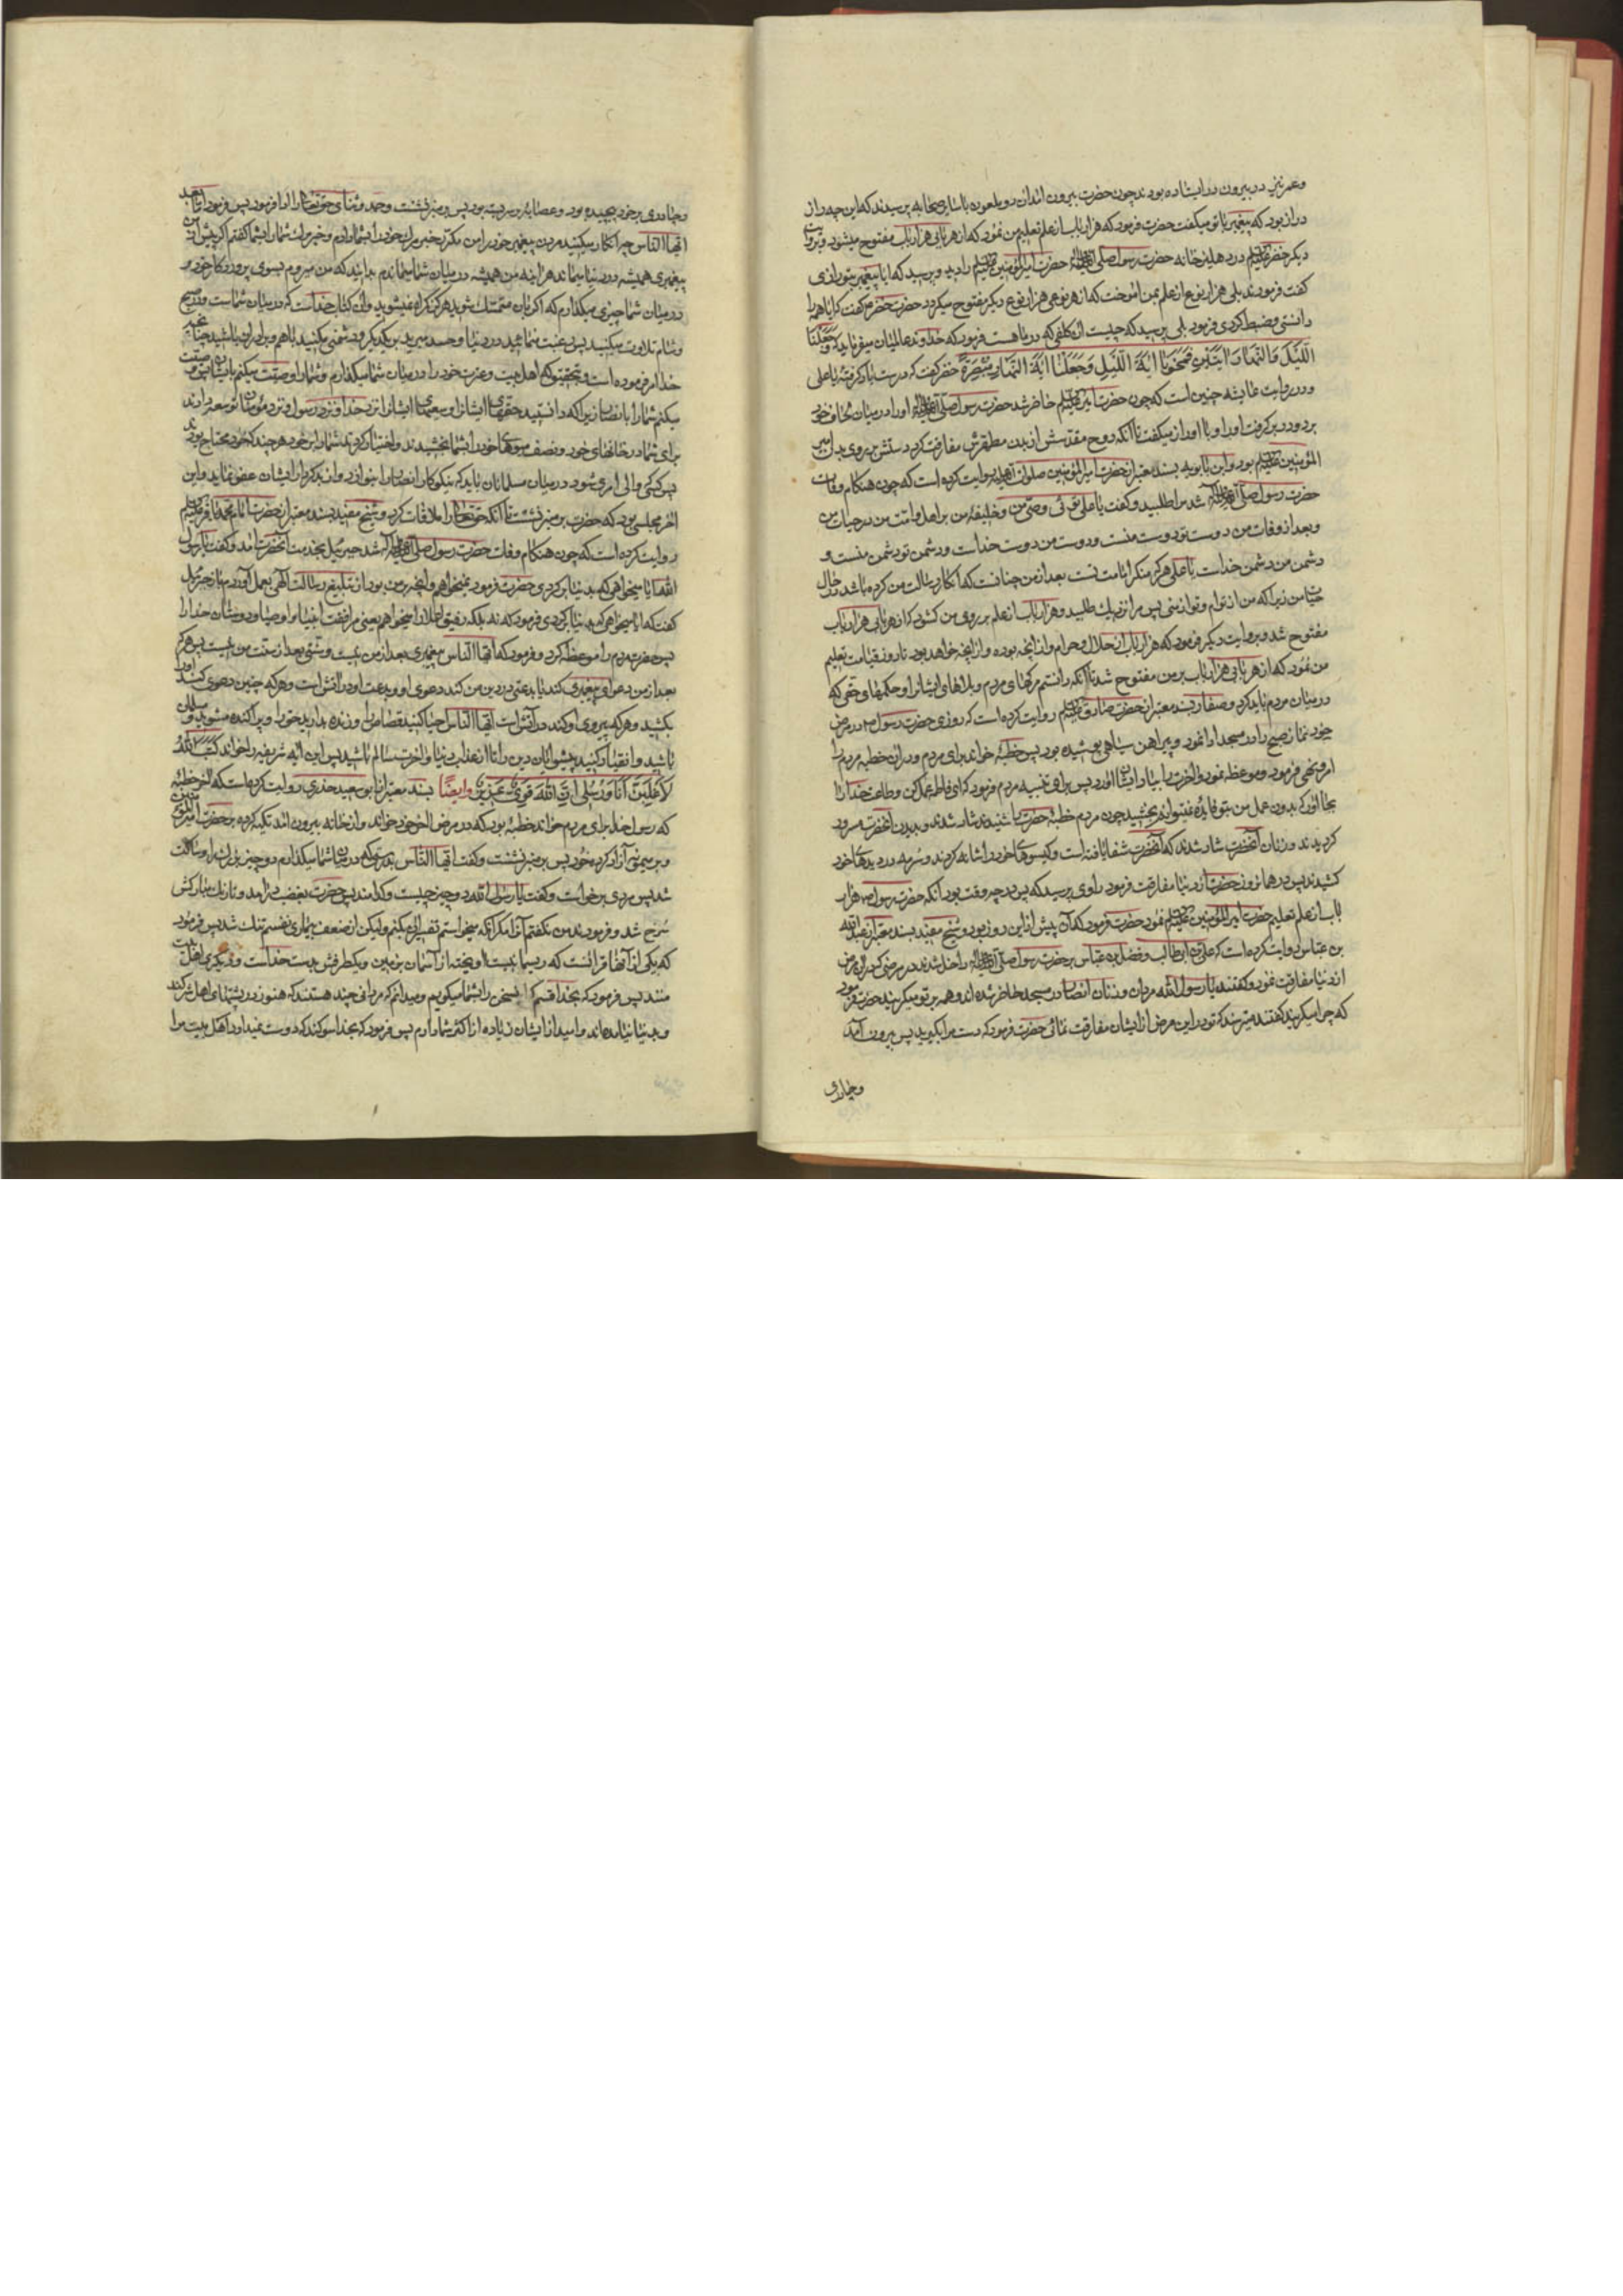 و عمر نیز در بیرون در ایستاده بودند چون حضرت بیرون آمد آن دو ملعون با سایر صحابه پرسیدند که این چه راز
دراز بود که پیغمبر با تو میگفت حضرت فرمود که هزار باب از علم تعلیم من نمود که از هر بابی هزار باب مفتوح میشود و بروایت
دیگر خضر علیه السلام در دهلیز خانه حضرت رسول صلی الله علیه وآله حضرت امیرالمؤمنین علیه السلام را دید و پرسید که ایا پیغمبر بتو رازی
گفت فرمودند بلی هزار نوع از علم بمن آموخت که از هر نوعی هزار نوع دیگر مفتوح میکردد حضرت خضر گفت که ایا همه را
دانستی و ضبط کردی فرمود بلی پرسید که چیست آن کلفی که در ماه هست فرمود که خداوند عالمیان میفرماید که وجعلنا
اللیل والنهار ایتین فمحونا ایة اللیل وجعلنا ایة النهار مبصرة خضر گفت که درست یاد گرفتهٔ یا علی
و در روایت عایشه چنین است که چون حضرت امیر علیه السلام حاضر شد حضرت رسول صلی الله علیه وآله او را در میان لحاف خود
برد و در بر گرفت او را و با او راز میگفت تا آنکه روح مقدسش از بدن مطهرش مفارقت کرد و دستش بر روی بدن امیر
المؤمنین علیه السلام بود و ابن بابویه بسند معتبر از حضرت امیرالمؤمنین صلوات الله علیه روایت کرده است که چون هنگام وفات
حضرت رسول صلی الله علیه وآله شد مرا طلبید و گفت یا علی توئی وصی من و خلیفهٔ من بر اهل و امت من در حیات من
و بعد از وفات من دوست تو دوست منست و دوست من دوست خداست و دشمن تو دشمن منست و
دشمن من دشمن خداست یا علی هر که منکر امامت تست بعد از من چنانست که انکار رسالت من کرده باشد در حال
حیات من زیرا که من از توام و تو از منی پس مرا نزدیک طلبید و هزار باب از علم بر روی من کشود که از هر بابی هزار باب
مفتوح شد و بروایت دیگر فرمود که هزار باب از حلال و حرام و از آنچه بوده و از آنچه خواهد بود تا روز قیامت تعلیم
من نمود که از هر بابی هزار باب بر من مفتوح شد تا آنکه دانستم مرکهای مردم و بلاهای ایشان را و حکمهای حقی که
در میان مردم باید کرد و صفار بسند معتبر از حضرت صادق علیه السلام روایت کرده است که روزی حضرت رسول در مرض
خود نماز صبح را در مسجد ادا نمود و پیراهن سیاهی پوشیده بود پس خطبهٔ خواند برای مردم و در آن خطبه مردم را
امر و نهی فرمود و موعظه نمود و آخرت را بیاد ایشان آورد پس برای تنبیه مردم فرمود که ای فاطمه عمل کن و طاعت خدا را
بجا آور که بدون عمل من بتو فایده نمیتوانم بخشید چون مردم خطبهٔ حضرت را شنیدند شاد شدند و بدیدن آنحضرت مسرور
کردیدند و زنان آنحضرت شاد شدند که آنحضرت شفا یافته است و گیسوهای خود را شانه کردند و سرمه در دیدهای خود
کشیدند پس در همانروز حضرت از دنیا مفارقت فرمود راوی پرسید که پس در چه وقت بود آنکه حضرت رسول هزار
باب از علم تعلیم حضرت امیرالمؤمنین علیه السلام نمود حضرت فرمود که آن پیش از این روز بود و شیخ مفید بسند معتبر از عبدالله
بن عباس روایت کرده است که علی بن ابی طالب و فضل بن عباس بر حضرت رسول صلی الله علیه وآله داخل شدند در مرضی که در آن مرض
از دنیا مفارقت نمود و گفتند یا رسول الله مردان و زنان انصار در مسجد حاضر شده اند و همه بر تو میگریند حضرت فرمود
که چرا میگریند گفتند میترسند که تو در این مرض از ایشان مفارقت نمائی حضرت فرمود که دست مرا بگیرید پس بیرون آمد
و چادری
و چادری بر خود پیچیده بود و عصابهٔ بر سر بسته بود پس بر منبر نشست و حمد و ثنای حقتعالی را ادا فرمود پس فرمود اما بعد
ایها الناس چه انکار میکنید مردن پیغمبر خود را من مکرر خبر مرگ خود را بشما دادم و خبر مرک شما را بشما گفتم اگر پیش از من
پیغمبری همیشه در دنیا میماند هر آینه من همیشه در میان شما میماندم بدانید که من میروم بسوی پروردگار خود و
در میان شما چیزی میگذارم که اگر بآن متمسک شوید هرگز گمراه نمیشوید و آن کتاب خداست که در میان شماست و در صبح
و شام تلاوت میکنید پس رغبت منمائید در دنیا و حسد مبرید بر یکدیگر و دشمنی مکنید با هم و برادران باشید چنانچه
خدا امر فرموده است و بتحقیق که اهل بیت و عترت خود را در میان شما میگذارم و شما را وصیت میکنم بایشان پس وصیت
میکنم شما را بانصار زیرا که دانستید حقهای ایشان را و سعیهای ایشان را نزد خدا و نزد رسول و نزد مؤمنان توسعه دادند
برای شما در خانهای خود و نصف میوهای خود را بشما بخشیدند و اختیار کردند شما را بر خود هر چند که خود محتاج بودند
پس کسی که والی امری شود در میان مسلمانان باید که نیکوکاران انصار را بنوازد و از بدکردار ایشان عفو نماید و این
آخر مجلسی بود که حضرت بر منبر نشست تا آنکه حقتعالی را ملاقات کرد و شیخ مفید بسند معتبر از حضرت امام محمد باقر علیه السلام
روایت کرده است که چون هنگام وفات حضرت رسول صلی الله علیه وآله شد جبرئیل بخدمت آنحضرت آمد و گفت یا رسول
الله ایا میخواهی که بدنیا برگردی حضرت فرمود نمیخواهم و آنچه بر من بود از تبلیغ رسالت الهی بعمل آوردم باز جبرئیل
گفت که ایا میخواهی که بدنیا برگردی فرمود که نه بلکه رفیق اعلا را میخواهم یعنی مرافقت انبیا و اوصیا و دوستان خدا را
پس حضرت مردم را موعظه کرد و فرمود که ایها الناس پیغمبری بعد از من نیست و سنتی بعد از سنت من نیست پس هر که
بعد از من دعوای پیغمبری کند یا بدعتی در دین من کند دعوی او و بدعت او در آتش است و هر که چنین دعوی کند او را
بکشید و هر که پیروی او کند در آتش است ایها الناس احیا کنید قصاص را و زنده بدارید حق را و پراکنده مشوید و مسلمان
باشید و انقیاد کنید پیشوایان دین را تا از عذاب دنیا و آخرت سالم باشید پس این آیهٔ شریفه را خواند کتب الله
لاغلبن انا ورسلی ان الله قوی عزیز و ایضا بسند معتبر از ابو سعید خدری روایت کرده است که آخر خطبهٔ
که رسول خدا برای مردم خواند خطبهٔ بود که در مرض آخر خود خواند و از خانه بیرون آمد تکیه کرده بر حضرت امیرالمؤمنین
و بر میمونه آزاد کردهٔ خود پس بر منبر نشست و گفت ایها الناس بدرستی که در میان شما میگذارم دو چیز بزرگ را و ساکت
شد پس مردی برخاست و گفت یا رسول الله دو چیز چیست و کدامند پس حضرت بغضب در آمد و تا رنگ مبارکش
سرخ شد و فرمود من نگفتم آنرا مگر آنکه میخواستم تفسیر آن بکنم ولیکن از ضعف بیماری نفسم تنگ شد پس فرمود
که یکی از آنها قرآنست که ریسمانیست آویخته از آسمان بزمین و یکطرفش بدست خداست و دیگری اهل بیت
منند پس فرمود که بخدا قسم که این سخن را بشما میگویم و میدانم که مردانی چند هستند که هنوز در پشتهای اهل شرکند
و بدنیا نیامده‌اند و امید از ایشان زیاده از اکثر شما دارم پس فرمود که بخدا سوگند که دوست نمیدارد اهل بیت مرا